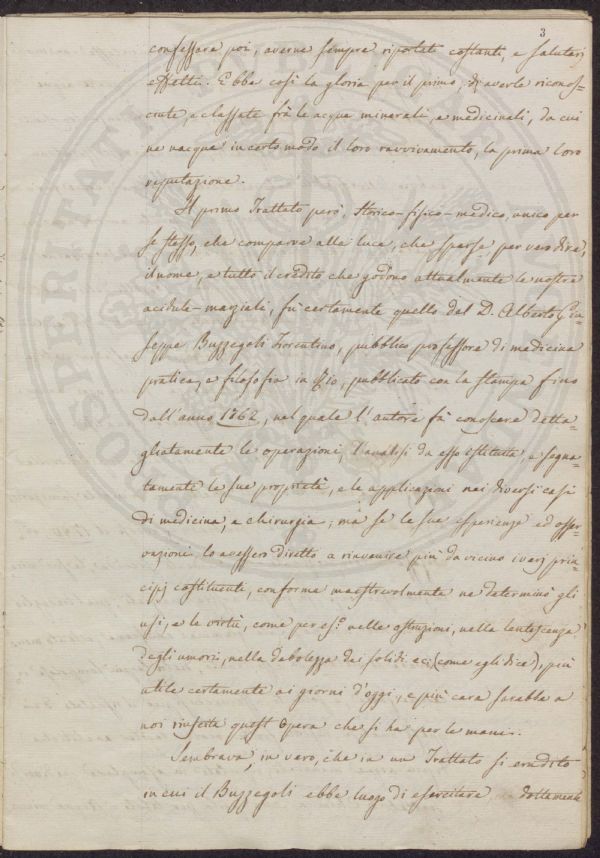 3
confessare poi, averne sempre riportati costanti, e salutari
effetti. Ebbe così la gloria per il primo, di averle ricono-
sciute, e classate frà le acque minerali, e medicinali, da cui
ne nacque in certo modo il loro ravvivamento, la prima loro
reputazione.
Il primo Trattato però, Storico-fisico-medico, unico per
se stesso, che comparve alla luce, che sparse per vero dire,
il nome, e tutto il credito che godono attualmente le nostre
acidule-marziali, fù certamente quello del D. Alberto Giu-
seppe Buzzegoli Fiorentino, pubblico professore di medicina
pratica, e filosofia in Rio, pubblicato con la stampa fino
dall'anno 1762, nel quale l'autore fà conoscere detta-
gliatamente le operazioni, l'analisi da esso istituita, e segna-
tamente le sue proprietà, e le applicazioni nei diversi casi
di medicina, e chirurgia; ma se le sue esperienze ed osser-
vazioni lo avessero diretto a rinvenire più da vicino i varj prin-
cipj costituente, conforme maestrevolmente ne determinò gli
usi, e le virtù, come per es.o nelle ostruzioni, nella lentescenza
degli umori, nella debolezza dei solidi ec: (come egli dice), più
utile certamente ai giorni d'oggi, e più cara sarebbe a
noi riuscita quest'Opera che si ha per le mani.
Sembrava, in vero, che in un Trattato sì erudito
in cui il Buzzegoli ebbe luogo di esercitare dottamente